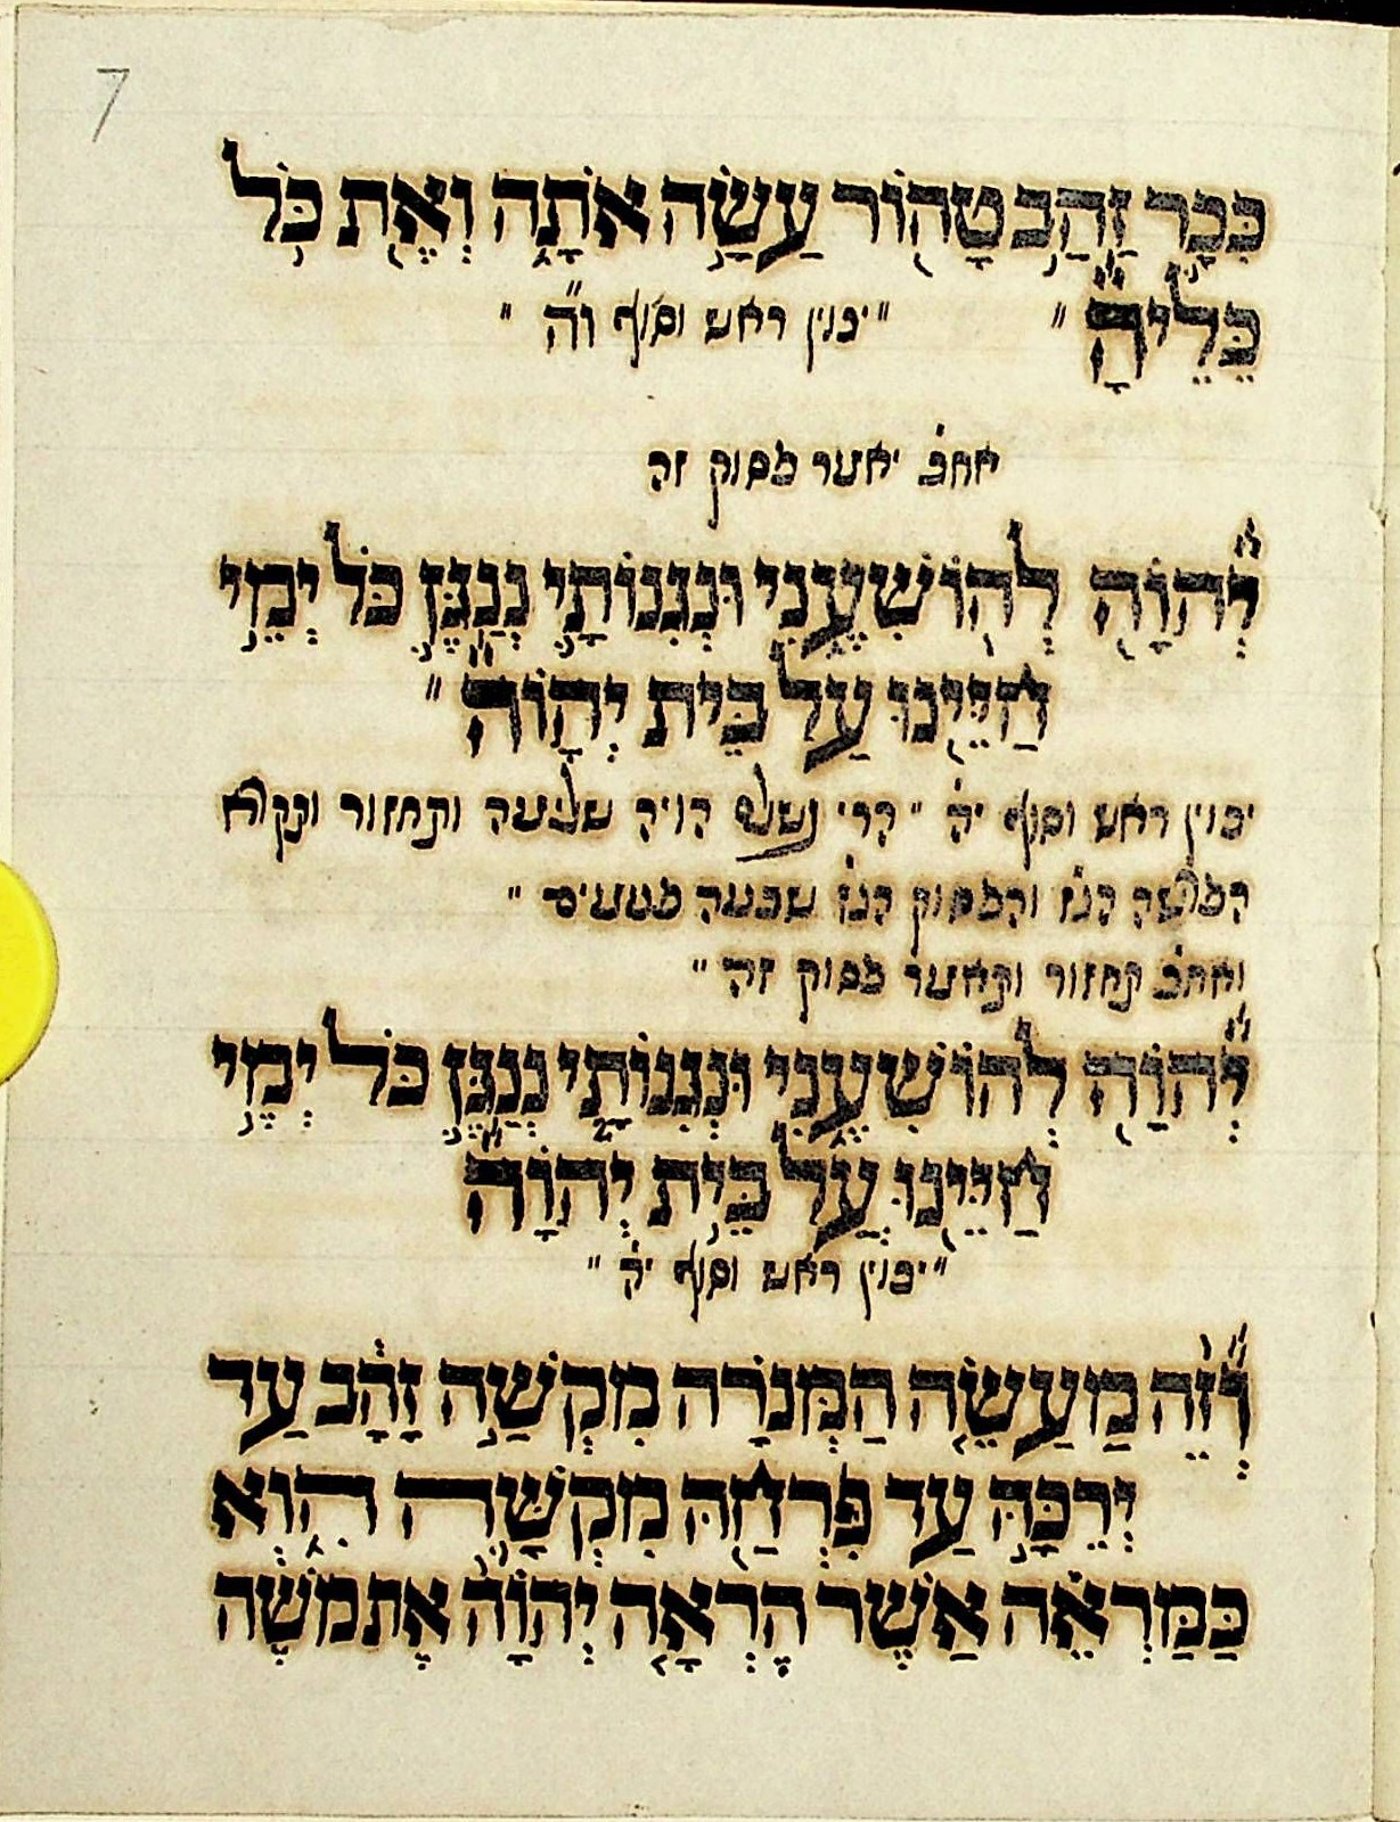 7
כִּכָּר זָהָב טָהוֹר עָשָׂה אֹתָהּ וְאֵת כָּל
כֵּלֶיהָ " " יכוין ראש וסוף וה "
אחכ יאמר פסוק זה
יְהוָה לְהוֹשִׁיעֵנִי וּנְגִנוֹתַי נְנַגֵּן כָּל יְמֵי
חַיֵּינוּ עַל בֵּית יְהוָה "
יכוין ראש וסוף יה " הרי נשלם הויה שלימה ותחזור ותקרא
הפרשה הנז והפסוק הנז שבעה פעמים "
ואחכ תחזור ותאמר פסוק זה "
יְהוָה לְהוֹשִׁעֵנִי וּנְגִנוֹתַי נְנַגֵּן כָּל יְמֵי
חַיֵּינוּ עַל בֵּית יְהוָה
" יכוין ראש וסוף יה "
וְזֶה מַעֲשֵׂה הַמְּנֹרָה מִקְשָׁה זָהָב עַד
יְרֵכָהּ עַד פִּרְחָהּ מִקְשָׁה הִוא
כַּמַּרְאֶה אֲשֶׁר הֶרְאָה יְהוָה אֶת מֹשֶׁה